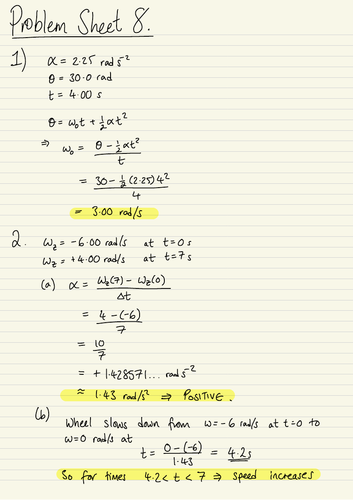 Problem Sheet 8.
1) α = 2.25 rad s⁻²
θ = 30.0 rad
t = 4.00 s
θ = ω₀t + ½αt²
⇒ ω₀ = (θ - ½αt²)/t
= (30 - ½(2.25)4²)/4
= 3.00 rad/s
2. ω_z = -6.00 rad/s at t=0s
ω_z = +4.00 rad/s at t=7s
(a) α = (ω_z(7) - ω_z(0))/Δt
= (4 - (-6))/7
= 10/7
= +1.428571... rad s⁻²
≈ 1.43 rad/s² ⇒ POSITIVE.
(b) Wheel slows down from ω=-6 rad/s at t=0 to
ω=0 rad/s at
t = (0-(-6))/1.43 = 4.2s
So for times 4.2 < t < 7 ⇒ speed increases